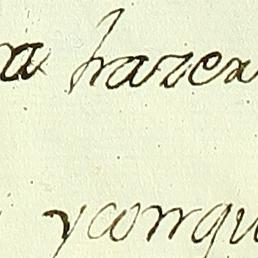 a hazer
yconqu